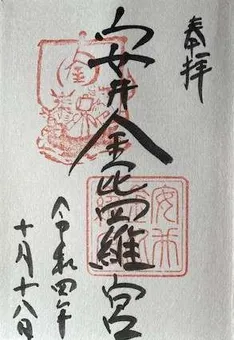 奉拝
安井金毘羅宮
令和四年
十月十八日
金